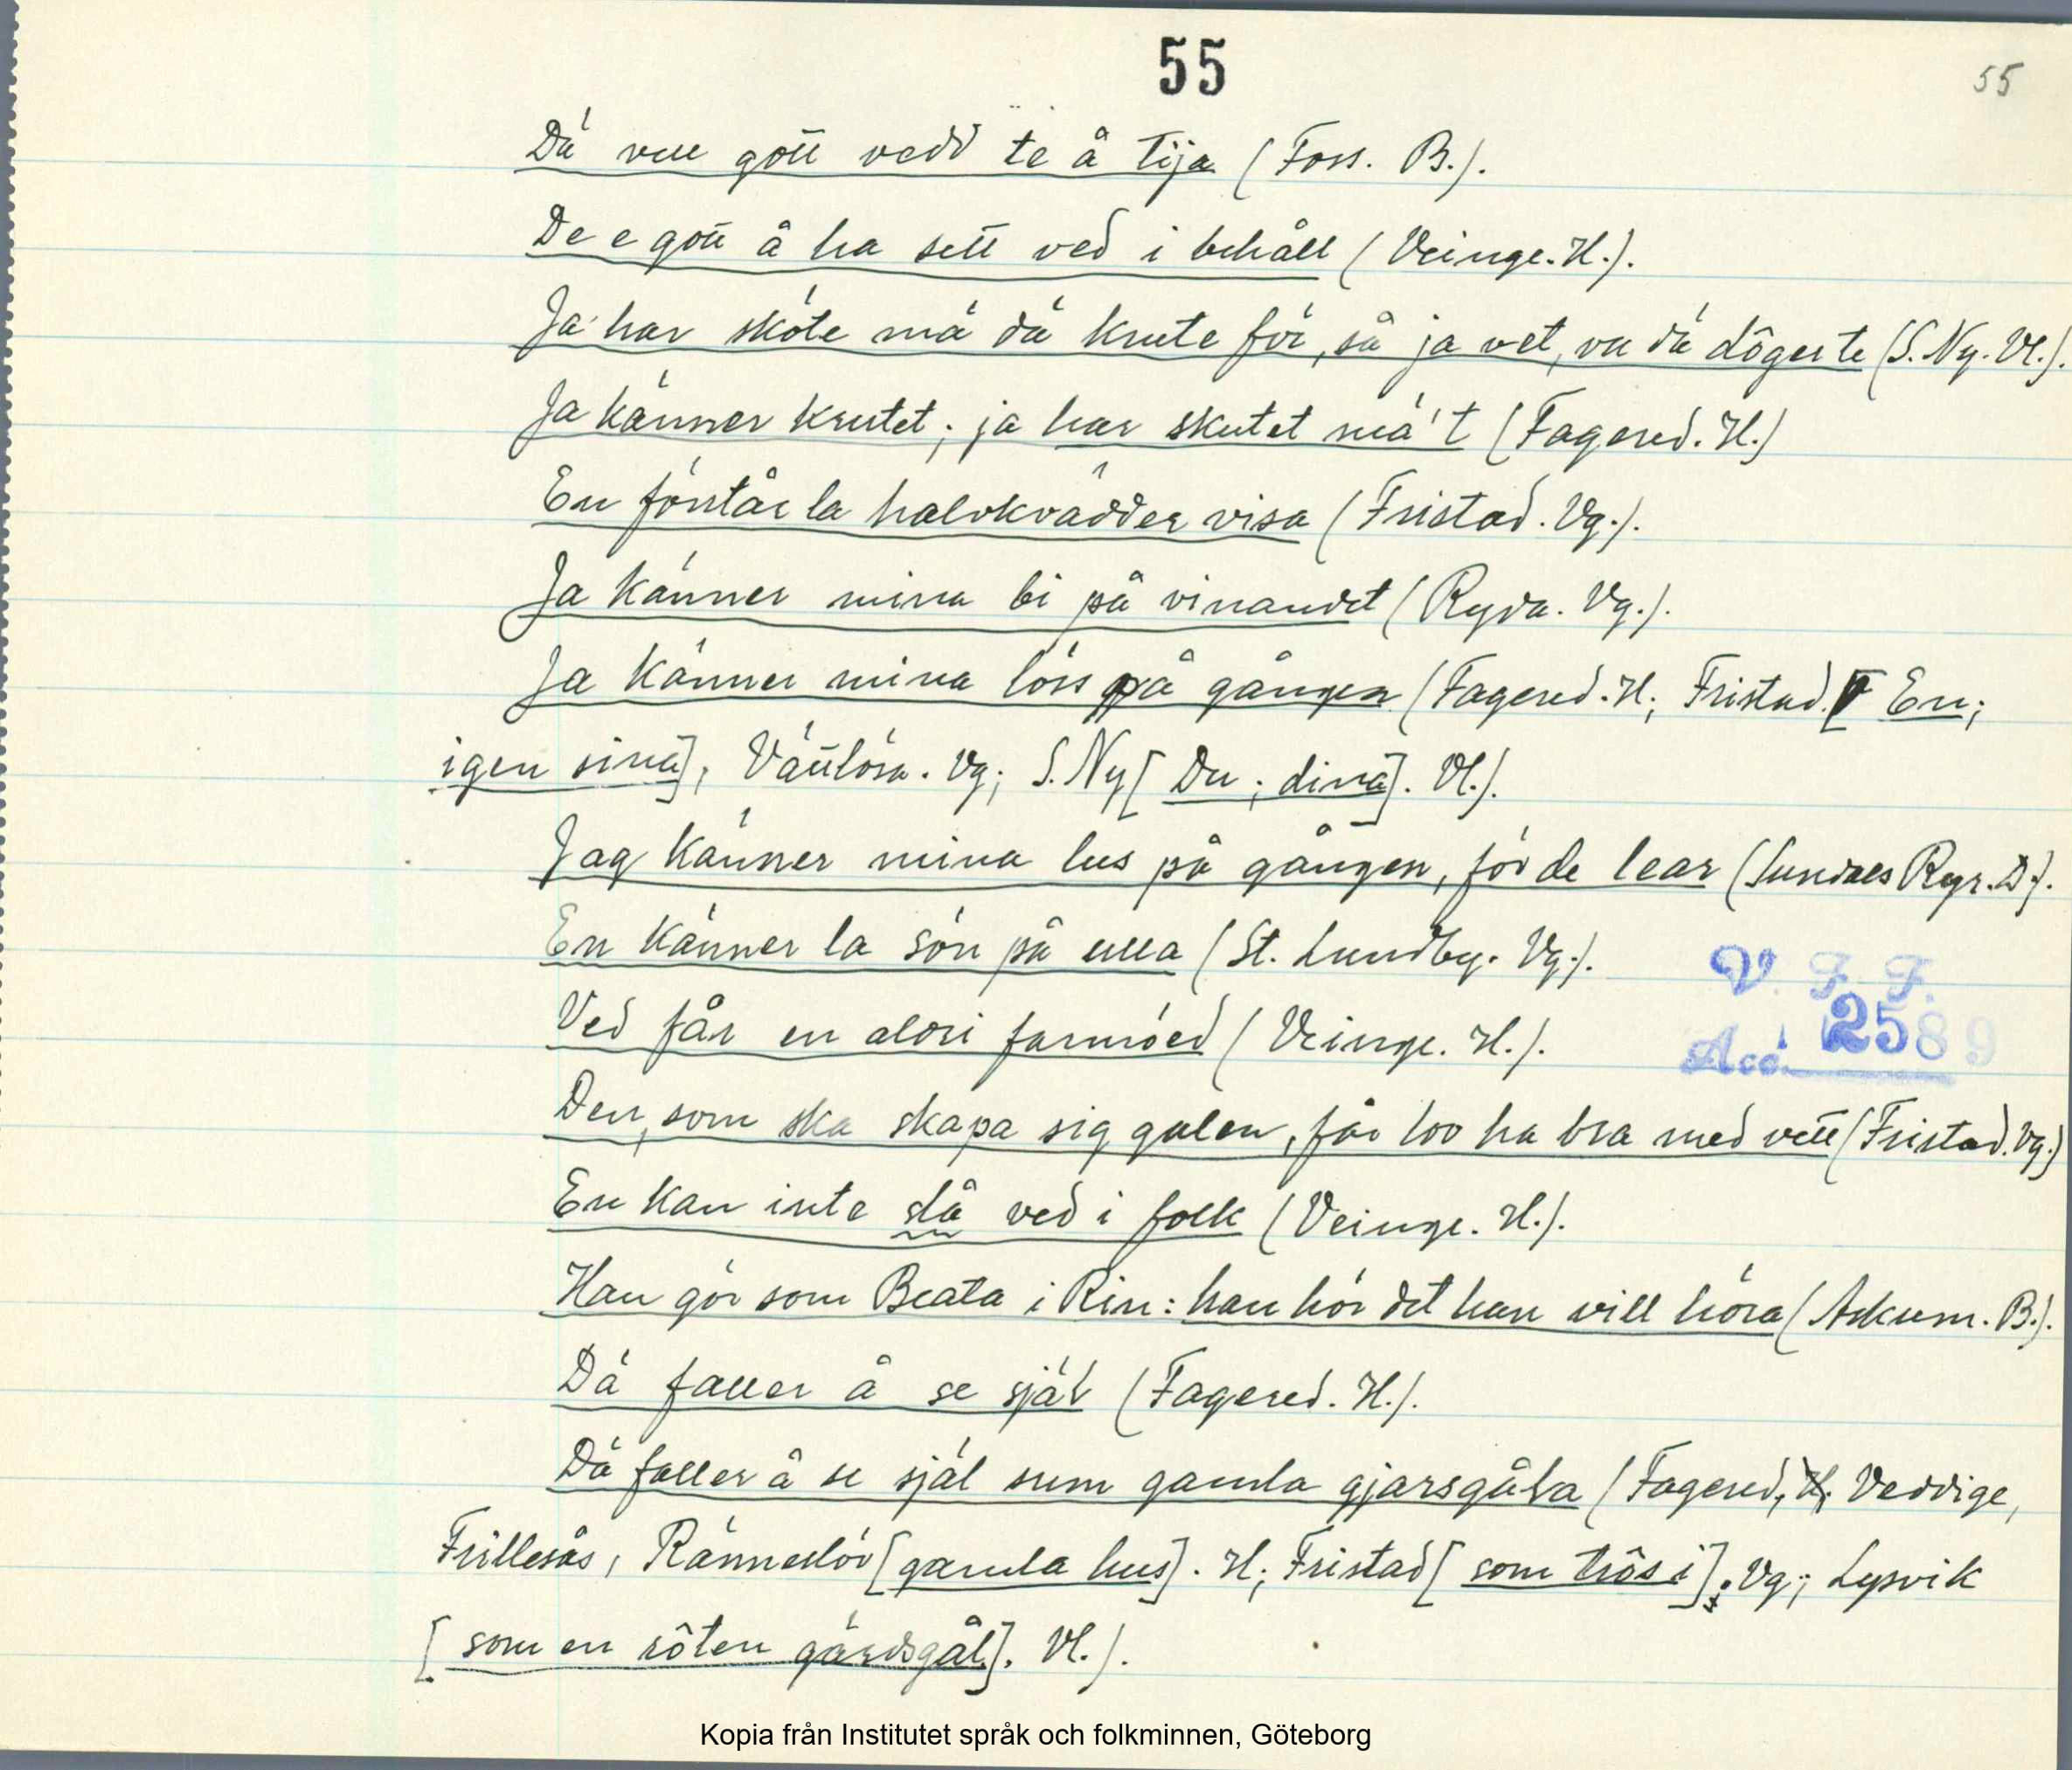 55
55
Dä vill gott vedd te å tija (Foss. B.).
De e gott å ha sett ved i behåll (Veinge. H.).
Ja har sköte mä dä krute för, så ja vet, va dä dôger te (S. Ny. Vl.).
Ja känner krutet; ja har skutet mä't (Fagered. H.)
En förstår la halvkvädder visa (Fristad. Vg.).
Ja känner mina bi på vinandet (Ryda. Vg.).
Ja känner mina löss på gången (Fagered. H; Fristad [En;
igen sina], Vättlösa. Vg; S. Ny [Du; dina]. Vl.).
Jag känner mina lus på gången, för de lear (Sundals Ryr. D.).
En känner la sön på ulla (St. Lundby. Vg.).
Ved får en aldri farmöed (Veinge. H.).
V. F. F.
Acc. 2589
Den, som ska skapa sig galen, får lov ha bra med vett (Fristad. Vg.)
En kan inte slå ved i folk (Veinge. H.).
Han gör som Beata i Rin: han hör det han vill höra (Askum. B.).
Dä faller å se själ (Fagered. H.).
Dä faller å se själ sum gamla gjarsgåla (Fagered, H, Veddige,
Frillesås, Ränneslöv [gamla hus]. H; Fristad [som trôs i]. Vg; Lysvik
[som en rôten gärdsgål]. Vl.).
Kopia från Institutet språk och folkminnen, Göteborg